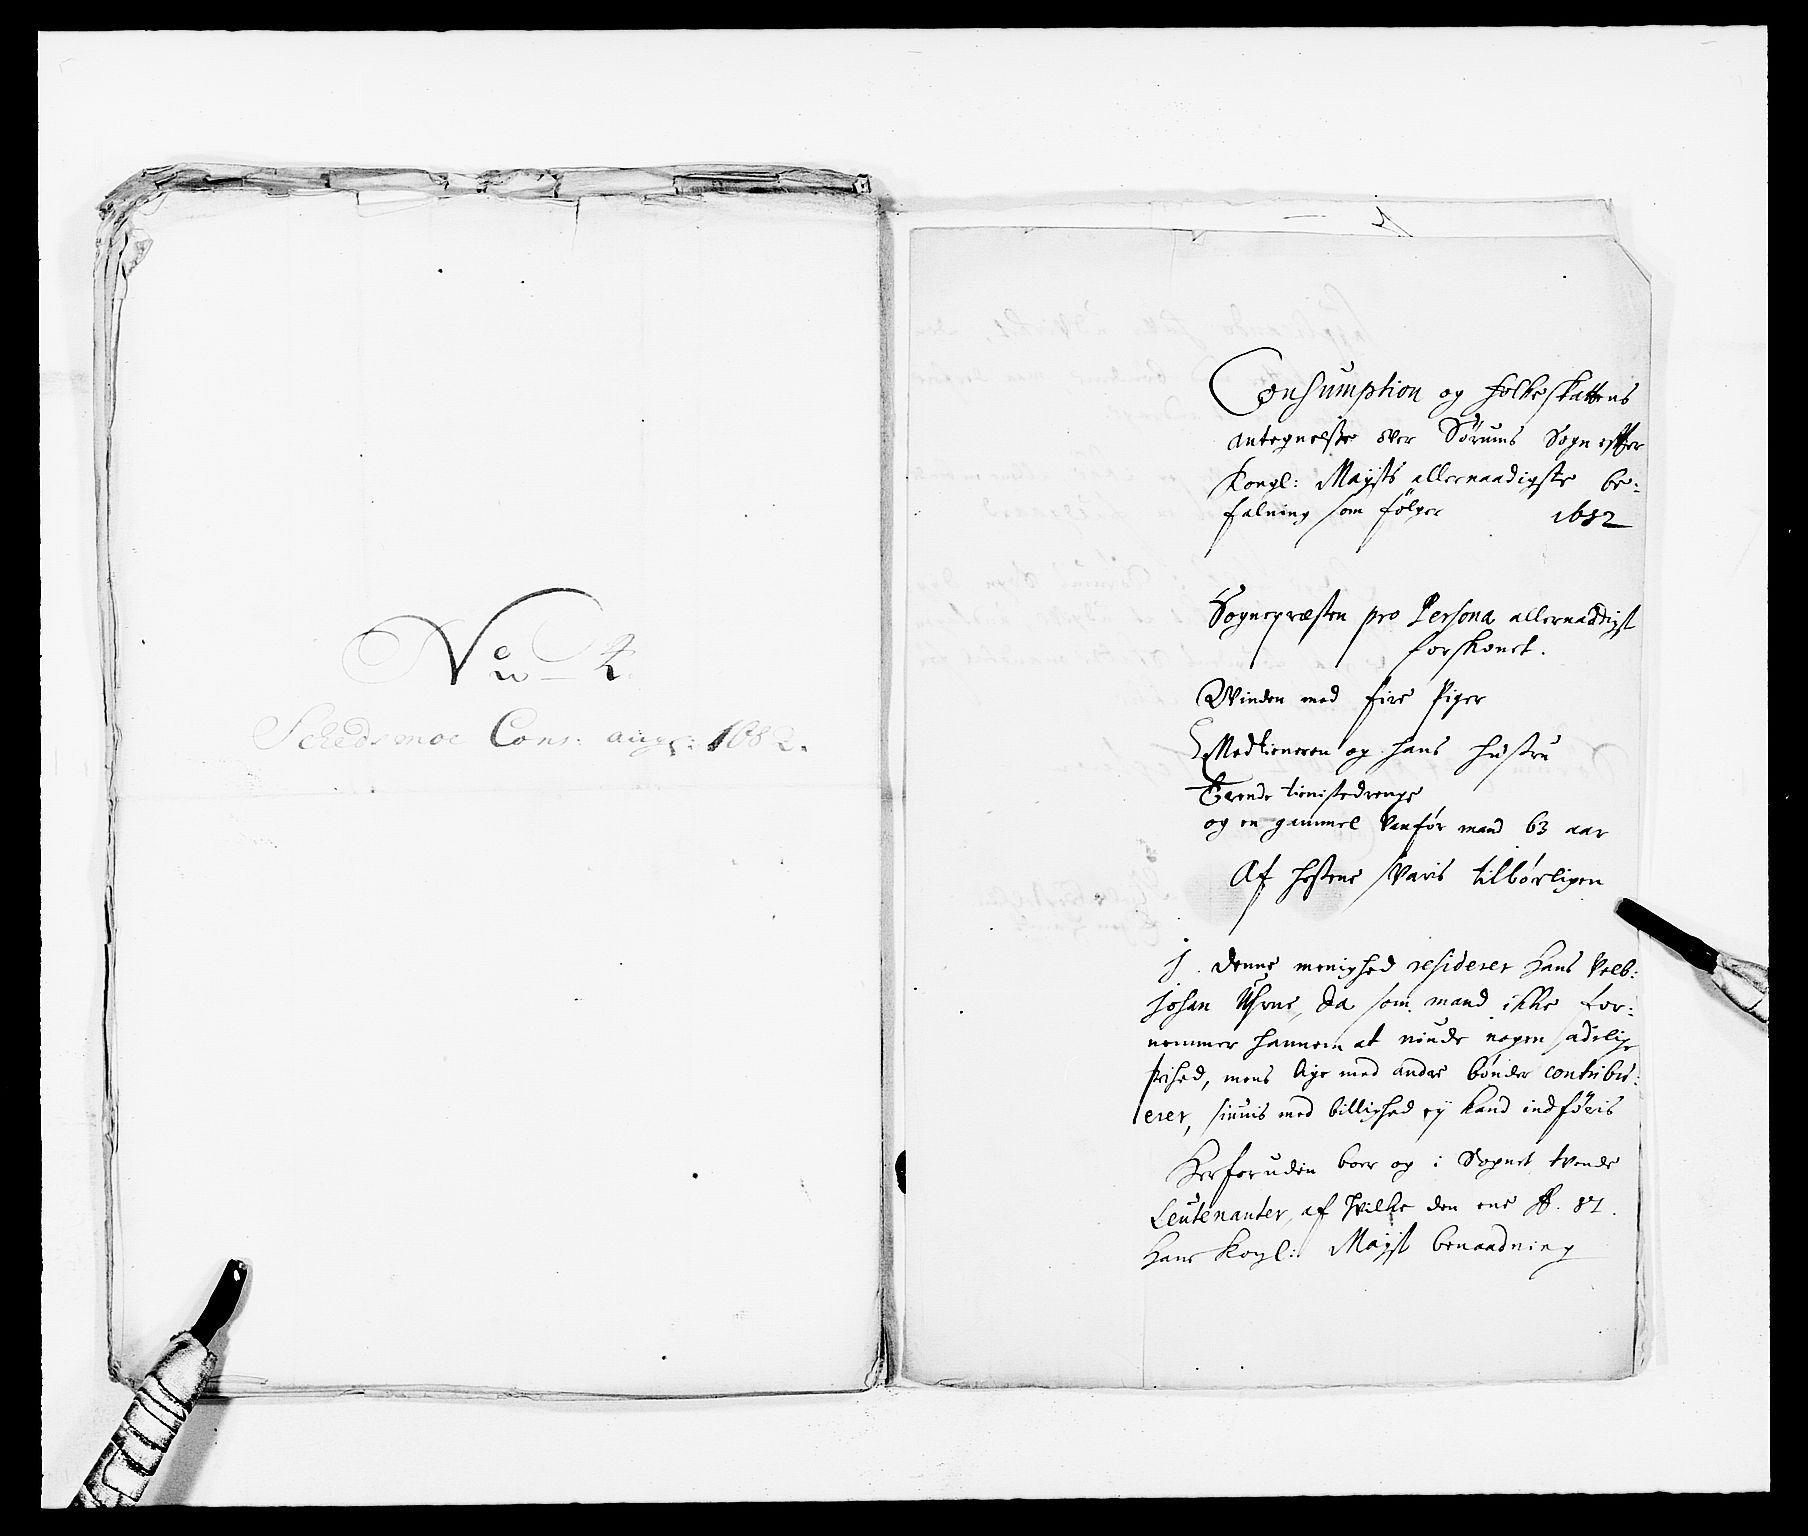 No 4.
Schedsmoe Cons: ang: 1682.
Consumption og folkeskattens
antegnelse over Sørums Sogn effter
Kongl: Mayts allernaadigste be-
falning som følger 1682
Sognepræsten pro Persona allernaadigst
forskonet.
Qvinden med fire Piger
Medtieneren og hans hustru
Trende tienistedrenge
og en gammel vanfør mand 63 aar
Af hestene svaris tilbørligen
J denne menighed residerer Hans Velb:
Johan Uhrne, da som mand icke for-
nemmer hannem at niude nogen adelig
frihed, mens lige med andre bønder contribu-
erer, sinnis med billighed ey kand indføris
Herforuden boer og i Sognet tvende
Leutenanter, af hvilke den ene
Hans Kongl: Mayst benaadning